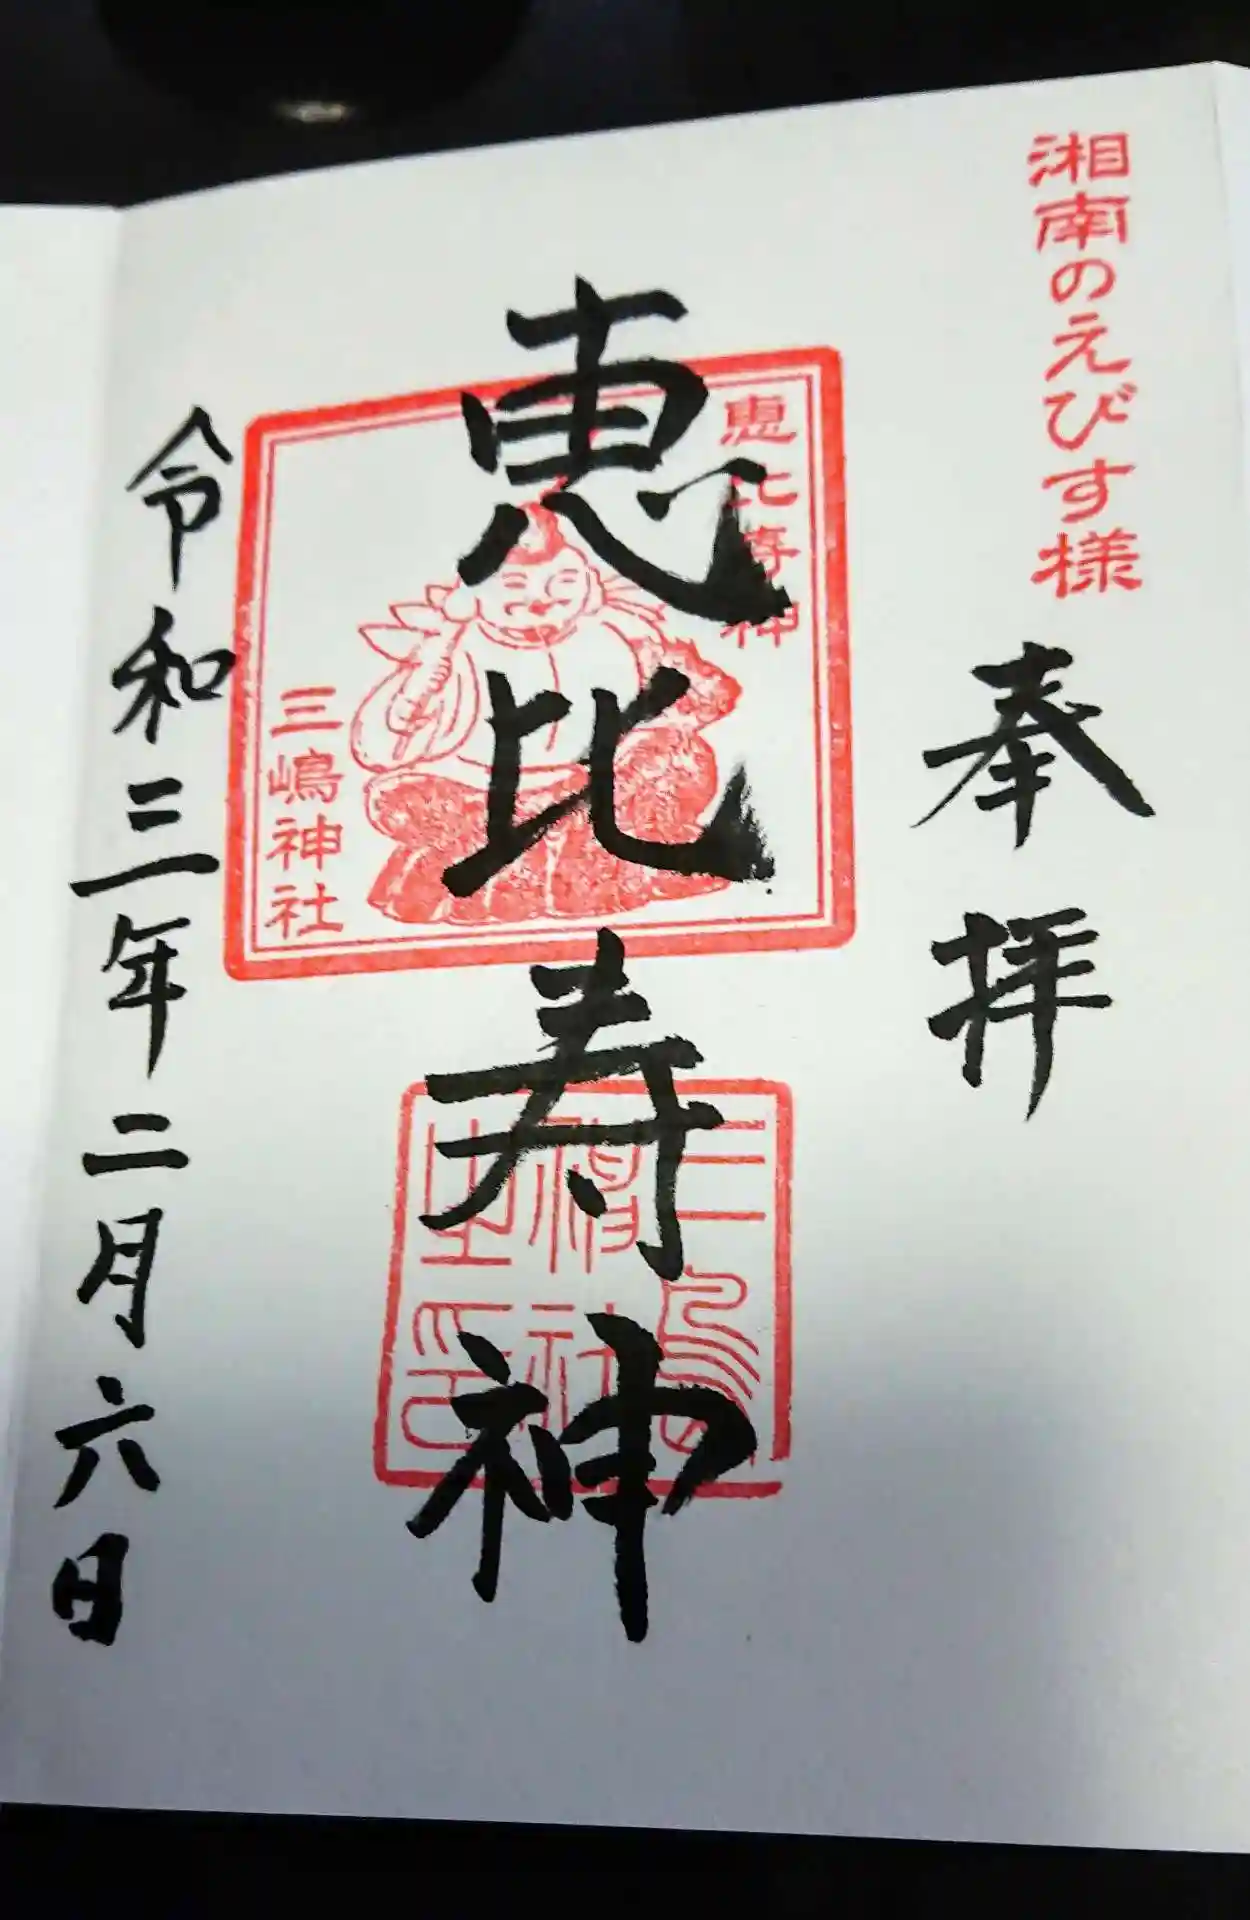 湘南のえびす様
奉拝
恵比寿神
恵比寿神
三嶋神社
三島神社之印
令和三年二月六日